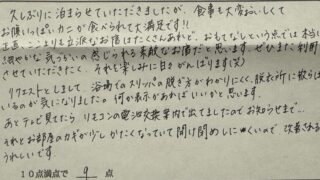 久しぶりに泊まらせていただきましたが、食事も大変おいしくて
お腹いっぱいカニが食べられて大満足です!!
正直、ここよりも立派なお宿はたくさんあれど、おもてなしという点では本当に
細やかな気づかいの感じられる素敵なお宿だと思います。ぜひまた利用
させていただきたく、それを楽しみに日々がんばります(笑)
リクエストとしまして 浴場でのスリッパの脱ぎ方がわかりにくく、脱衣所に散らば
いるのが気になりました。何か表示があればいいかと思います。
あとテレビ見てたら リモコンの電池交換案内で出てましたのでお知らせまで…
それとお部屋のカギが少しかたくなっていて開け閉めしに くいので 改善される
うれしいです。
10点満点で 9 点